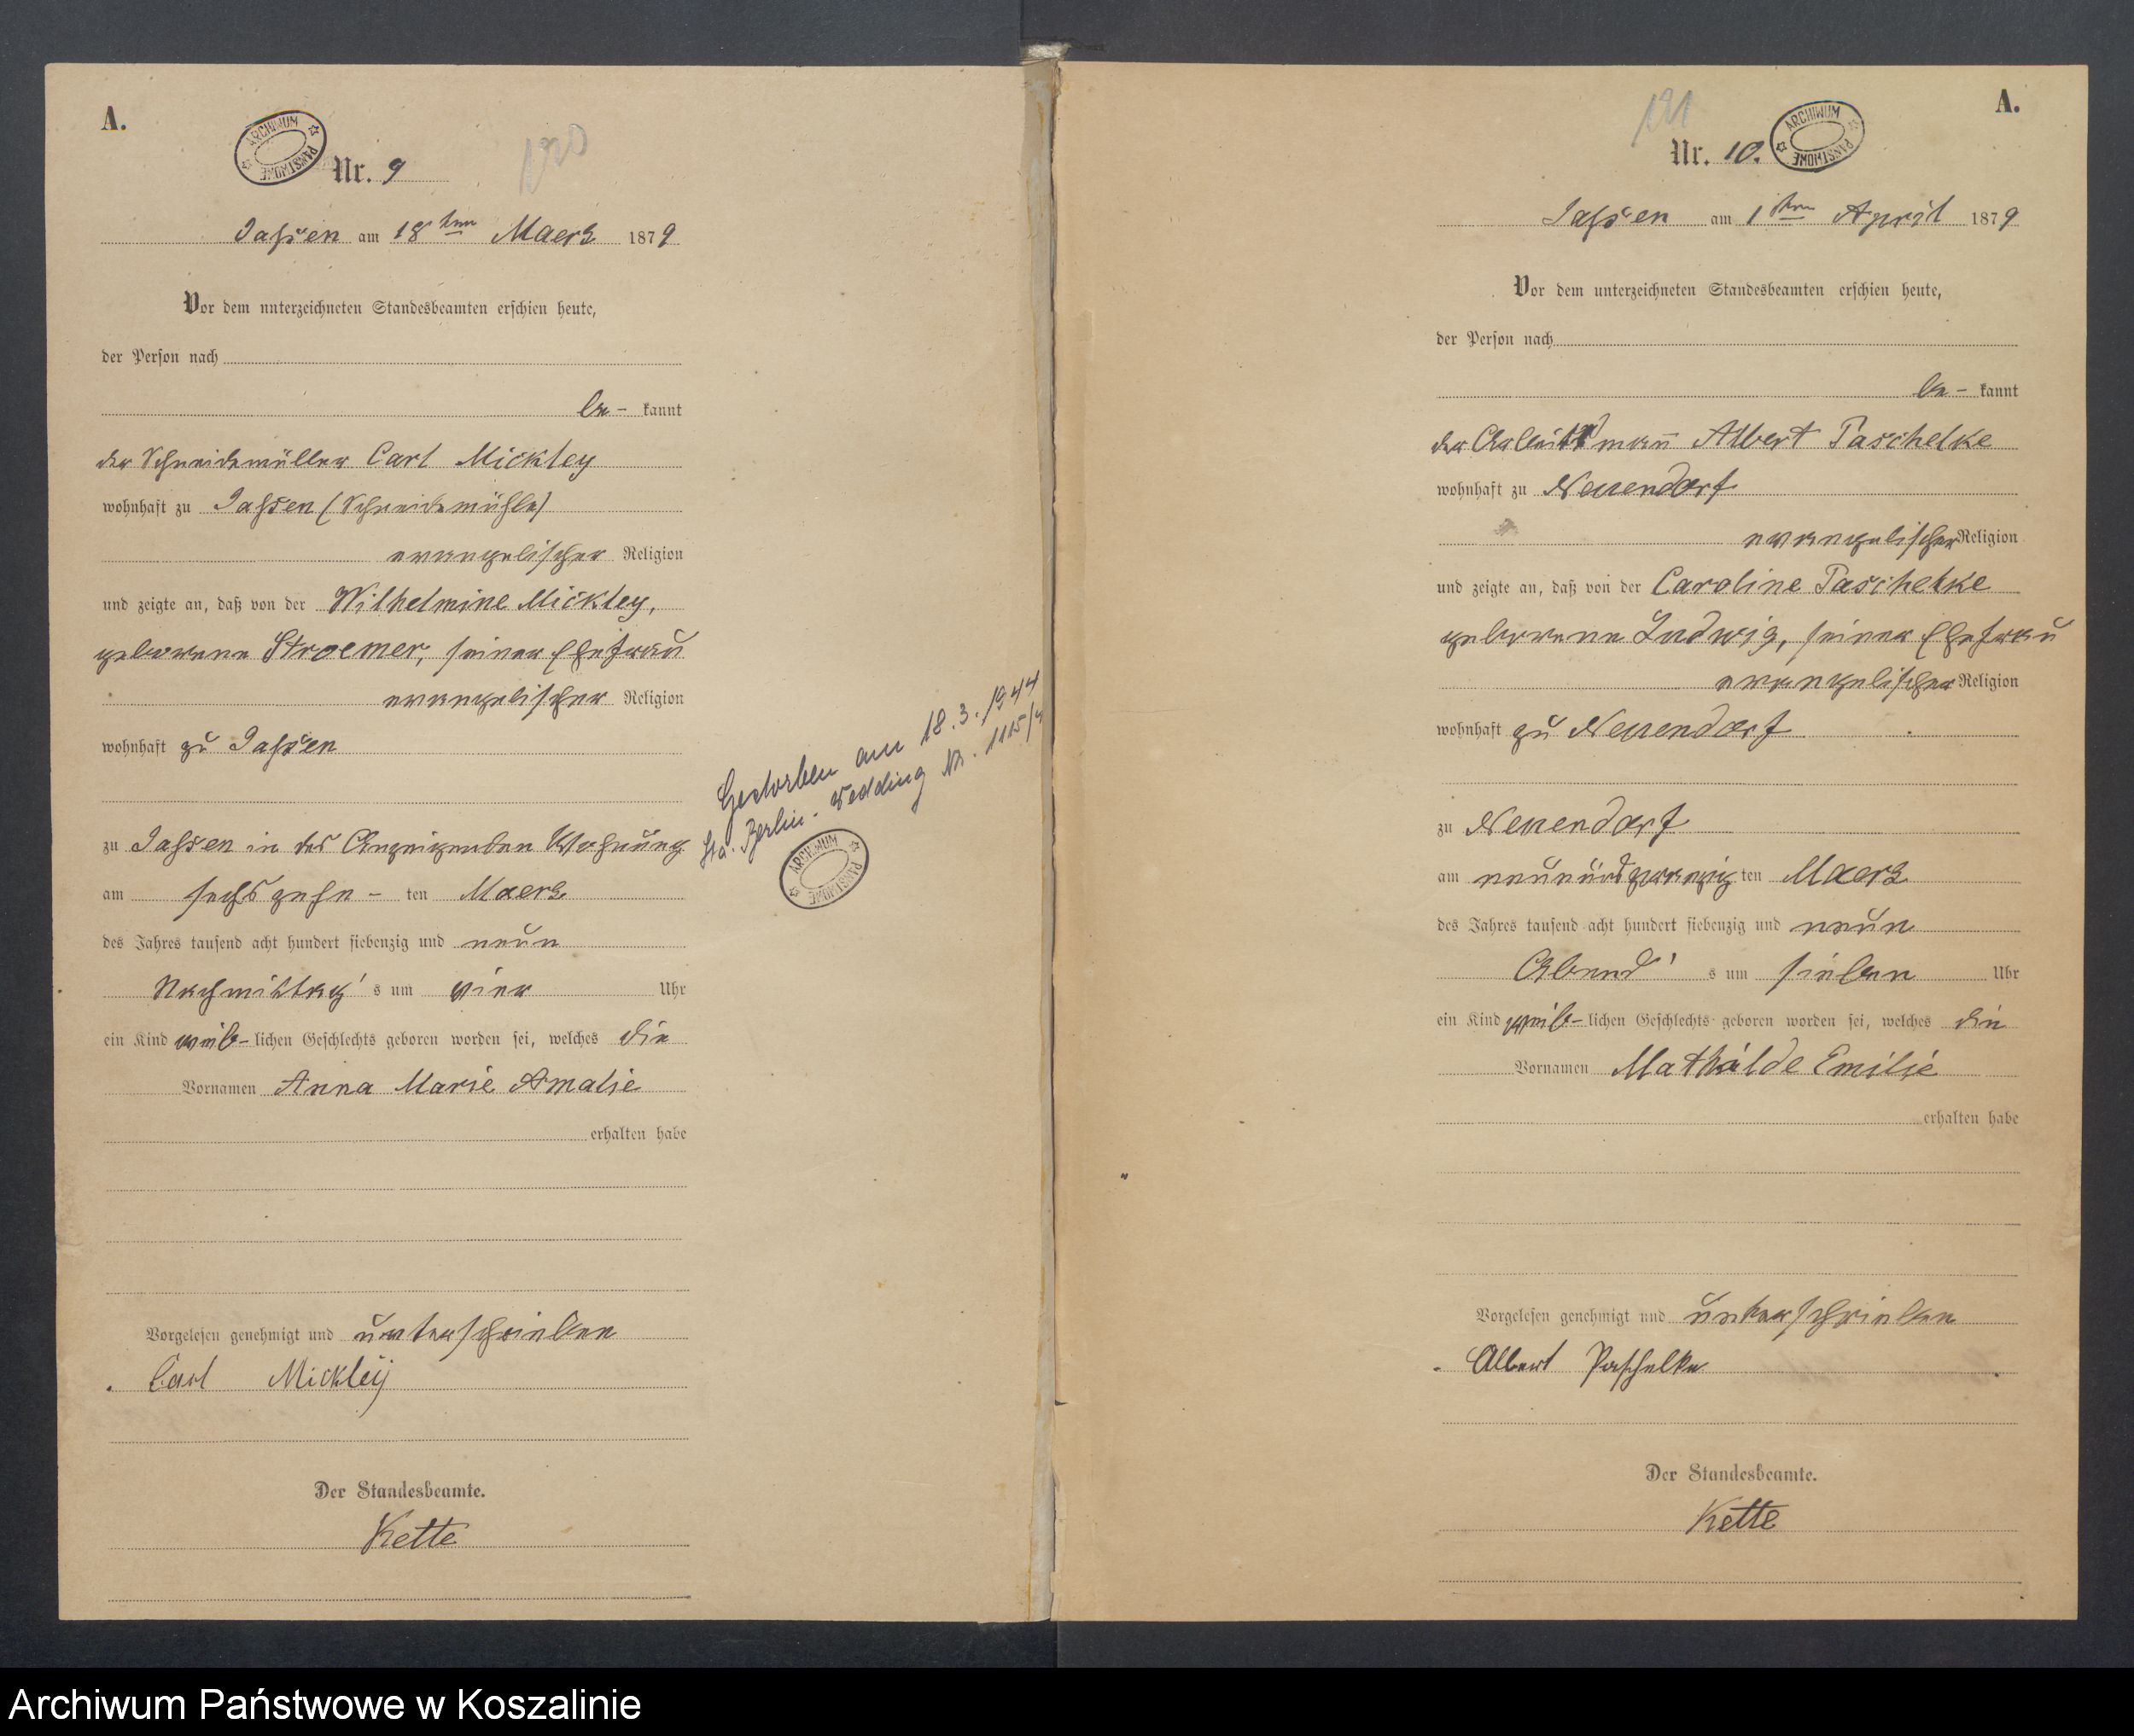 A.
ARCHIWUM PAŃSTWOWE
Nr. 9
120
Jassen am 18ten Maerz 1879
Vor dem unterzeichneten Standesbeamten erschien heute,
der Person nach
be- kannt
der Schneidemüller Carl Mickley
wohnhaft zu Jassen (Schneidemühle)
evangelischer Religion
und zeigte an, daß von der Wilhelmine Mickley,
geborene Stroemer, seiner Ehefrau
evangelischer Religion
wohnhaft zu Jassen
zu Jassen in des Anzeigenden Wohnung
am sechszehn- ten Maerz
des Jahres tausend acht hundert siebenzig und neun
Nachmittag's um vier Uhr
ein Kind weib-lichen Geschlechts geboren worden sei, welches die
Vornamen Anna Marie Amalie
erhalten habe
Vorgelesen genehmigt und unterschrieben
Carl Mickley
Der Standesbeamte.
Kette
Gestorben am 18.3.1944
Sta. Berlin-Wedding Nr. 1115/4
ARCHIWUM PAŃSTWOWE
A.
121
ARCHIWUM PAŃSTWOWE
Nr. 10.
Jassen am 1sten April 1879
Vor dem unterzeichneten Standesbeamten erschien heute,
der Person nach
be- kannt
der Arbeitsmann Albert Paschelke
wohnhaft zu Neuendorf
evangelischer Religion
und zeigte an, daß von der Caroline Paschelke
geborene Ludwig, seiner Ehefrau
evangelischer Religion
wohnhaft zu Neuendorf
zu Neuendorf
am neunundzwanzig ten Maerz
des Jahres tausend acht hundert siebenzig und neun
Abend's um sieben Uhr
ein Kind weib-lichen Geschlechts geboren worden sei, welches die
Vornamen Mathilde Emilie
erhalten habe
Vorgelesen genehmigt und unterschrieben
Albert Paschelke
Der Standesbeamte.
Kette
Archiwum Państwowe w Koszalinie